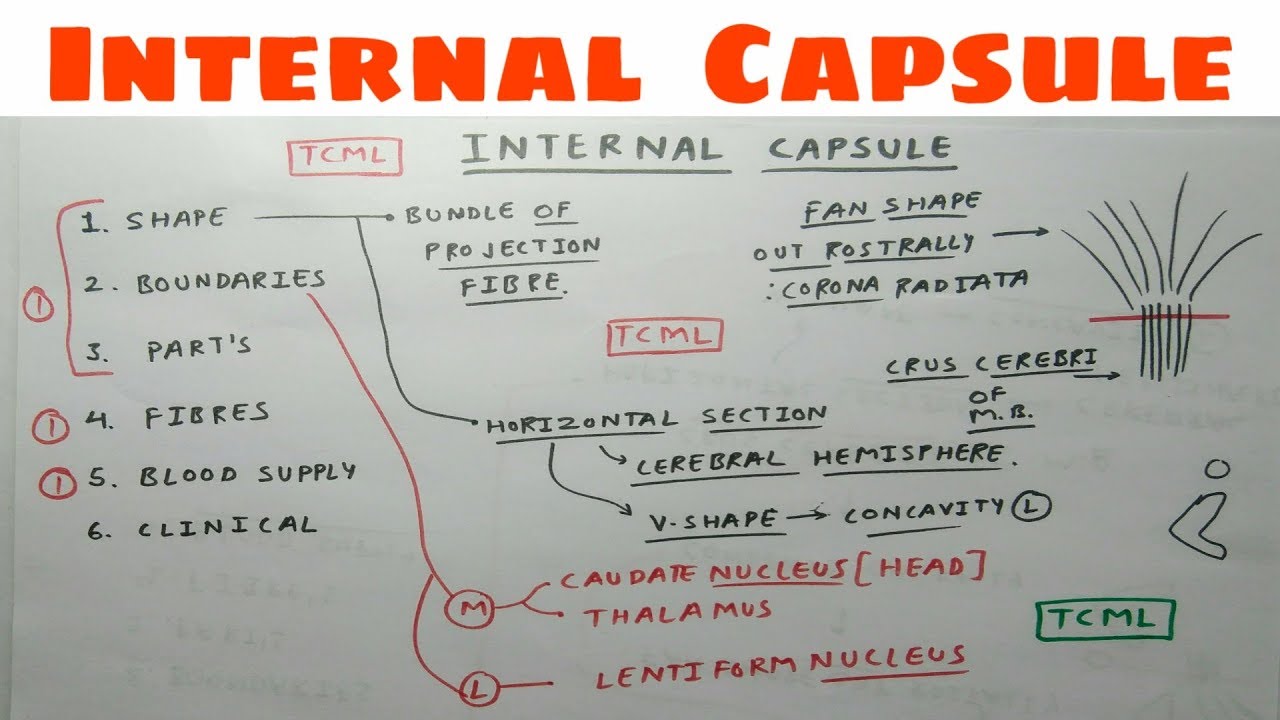 INTERNAL CAPSULE
TCML
INTERNAL CAPSULE
1. SHAPE
BUNDLE OF
PROJECTION
FIBRE.
FAN SHAPE
OUT ROSTRALLY
: CORONA RADIATA
2. BOUNDARIES
1
3. PART'S
TCML
CRUS CEREBRI
OF
M.B.
1
4. FIBRES
HORIZONTAL SECTION
CEREBRAL HEMISPHERE.
1
5. BLOOD SUPPLY
V-SHAPE → CONCAVITY L
6. CLINICAL
M
CAUDATE NUCLEUS [HEAD]
THALAMUS
TCML
L
LENTIFORM NUCLEUS